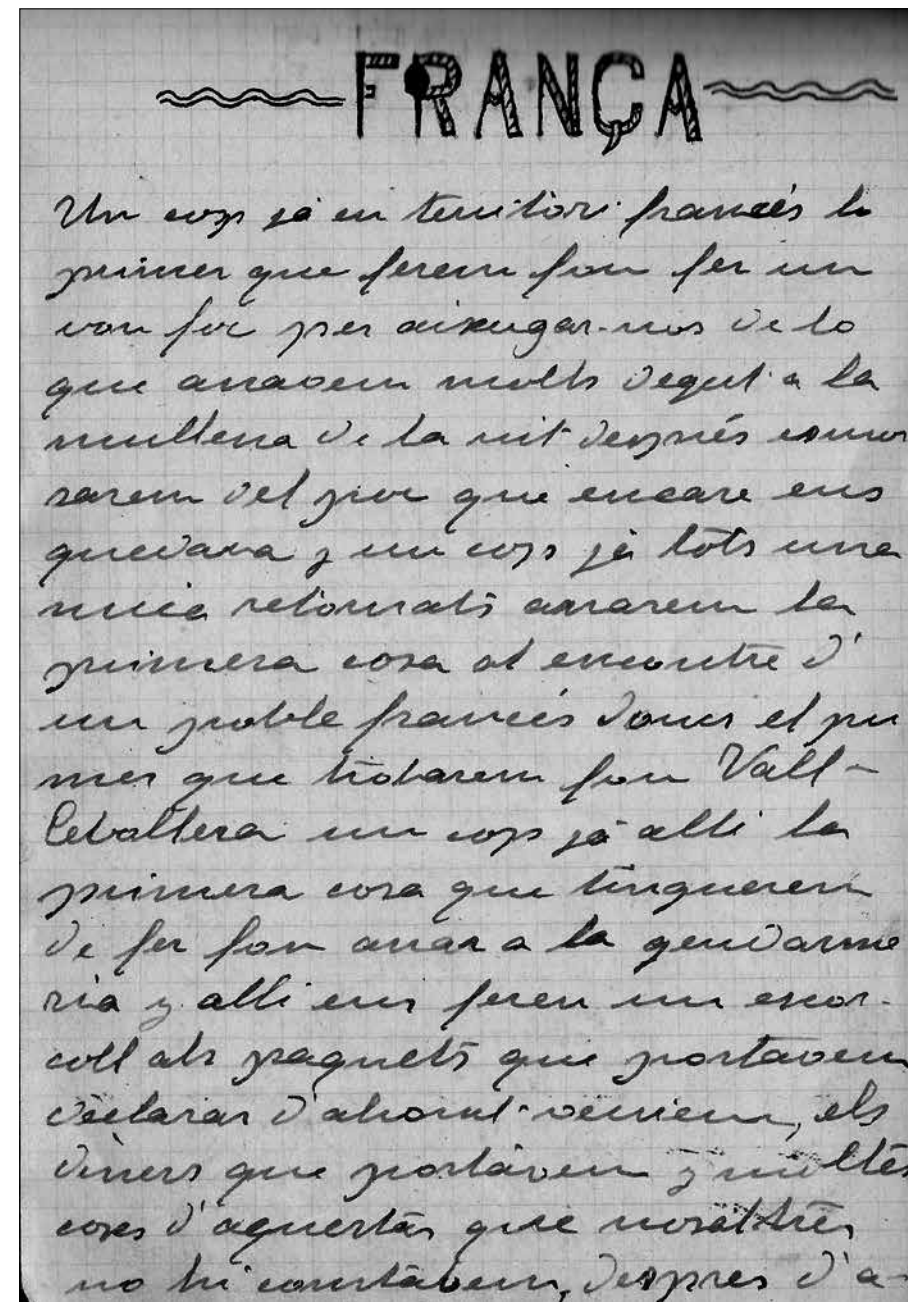 FRANÇA
Un cop ja en territori francés lo
primer que ferem fou fer un
bon foc per aixugar-nos de lo
que anavem molls degut a la
mullena de la nit després esmor
zarem del poc que encare ens
quedava y un cop ja tots una
mica retornats anarem la
primera cosa al encontre d'
un poble francés doncs el pri
mer que trobarem fou Vall-
Cebollera un cop ja alli la
primera cosa que tinguerem
de fer fou anar a la gendarme
ria y alli ens feren un escor-
coll als paquets que portavem
declarar d'ahont veniem, els
diners que portàvem y moltes
coses d'aquestas que nosaltres
no hi contàvem, despres d'a-